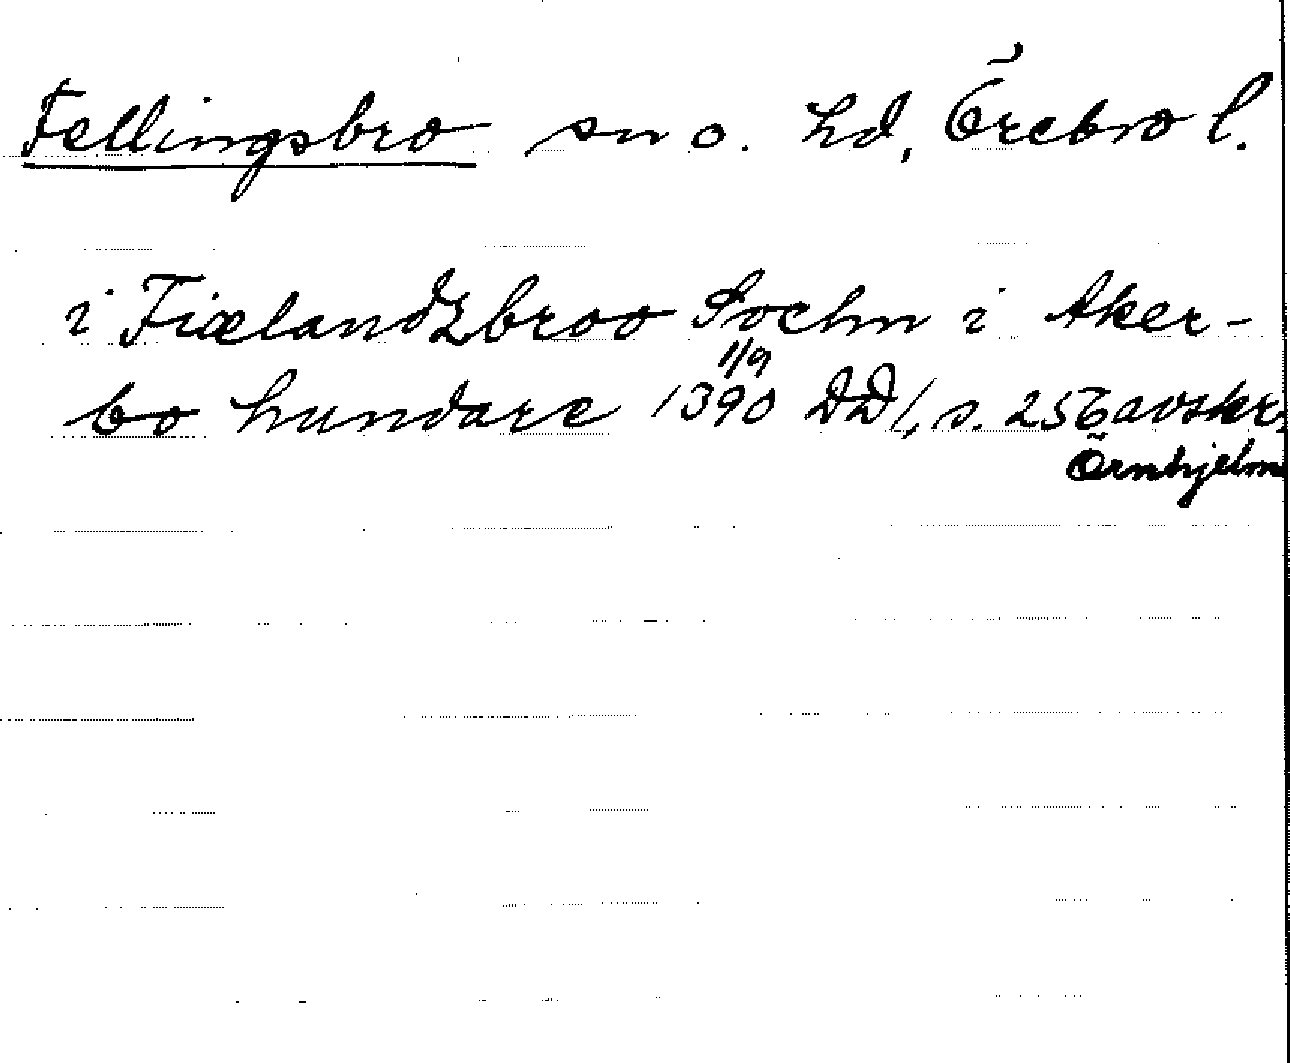 Fellingsbro sn o. hd, Örebro l.
i Fiælandzbroo Sochn i Aker-
bo hundare 1390 1/9 DD1, s. 256 avskr.
Örnhjelm